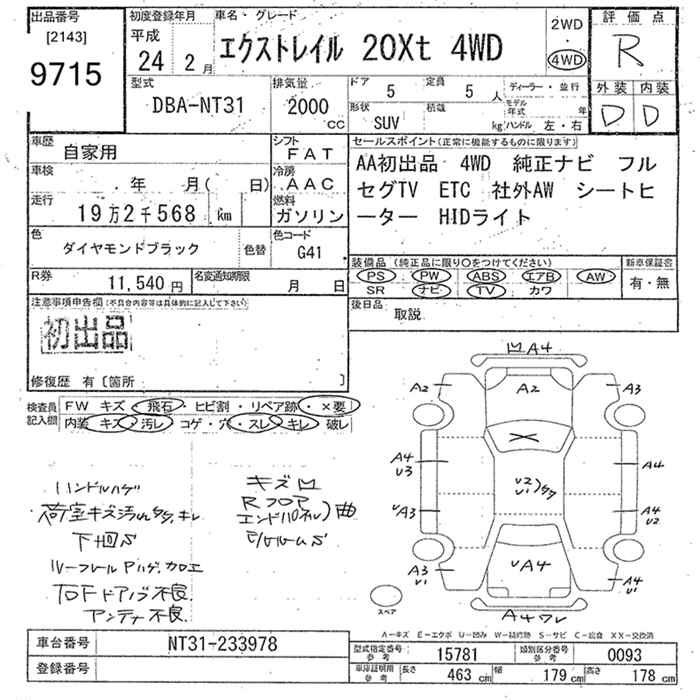 出品番号
[2143]
9715
初度登録年月
平成
24 2月
車名・グレード
エクストレイル 20Xt 4WD
2WD
・
4WD
評価点
R
外装 内装
D D
型式
DBA-NT31
排気量
2000
CC
ドア 5
定員 5人
ディーラー・並行
形状 SUV
積載 kg
モデル年式 年
ハンドル 左・右
車歴
自家用
シフト
FAT
車検
年 月( 日)
冷房
AAC
走行
19万2千568 km
燃料
ガソリン
色
ダイヤモンドブラック
色替
色コード
G41
R券
11,540円
名変通知期限
月 日
セールスポイント(正常に機能するものに限ります)
AA初出品 4WD 純正ナビ フル
セグTV ETC 社外AW シートヒ
ーター HIDライト
装備品(純正品に限り○をつけてください)
PS PW ABS エアB AW
SR ナビ TV カワ
新車保証書
有・無
後日品
取説
注意事項申告欄(不具合内容等は具体的に記入して下さい)
初出品
修復歴 有〔箇所 〕
検査員記入欄
FW キズ・飛石・ヒビ割・リペア跡・×要
内装 キズ・汚レ・コゲ・穴・スレ・キレ・破レ
ハンドルハゲ
荷室キズ汚れ
下回S
ルーフレール
ドアノブ不良
アンテナ不良
キズ凹
Rフロア
エンドパネル)曲
凹A4
A2 A2 A3
A4
U3
A4
U2
U1
A3
A4
U2
A3
U1
A4
A4
U1
スペア
A4ワレ
A-キズ E-エクボ U-凹み W-補修跡 S-サビ C-腐食 XX-交換済
車台番号
NT31-233978
登録番号
型式指定番号
参考
15781
類別区分番号
参考
0093
車庫証明用
参考
長さ 463 cm
幅 179 cm
高さ 178 cm